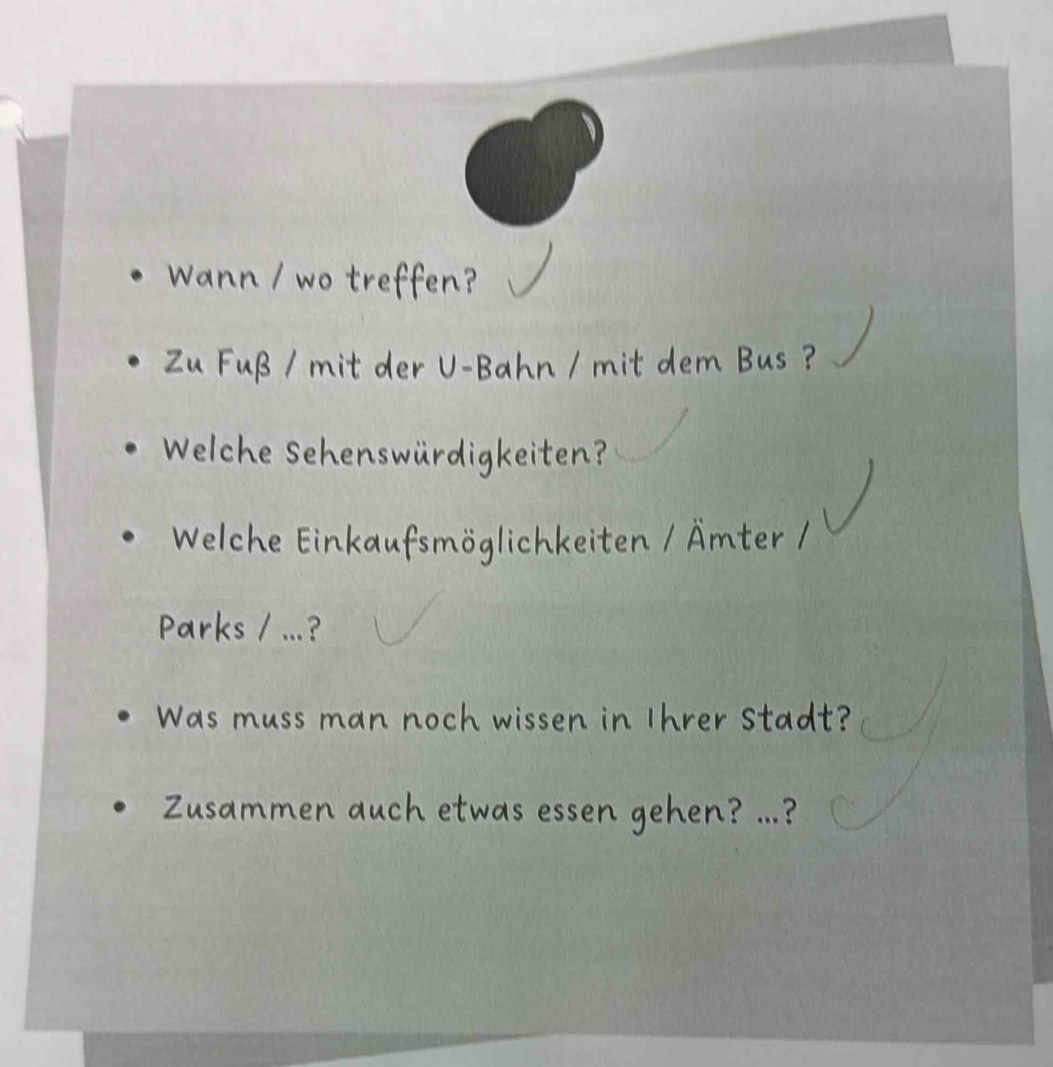 • Wann / wo treffen?
• Zu Fuß / mit der U-Bahn / mit dem Bus ?
• Welche Sehenswürdigkeiten?
• Welche Einkaufsmöglichkeiten / Ämter /
Parks / ...?
• Was muss man noch wissen in Ihrer Stadt?
• Zusammen auch etwas essen gehen? ...?